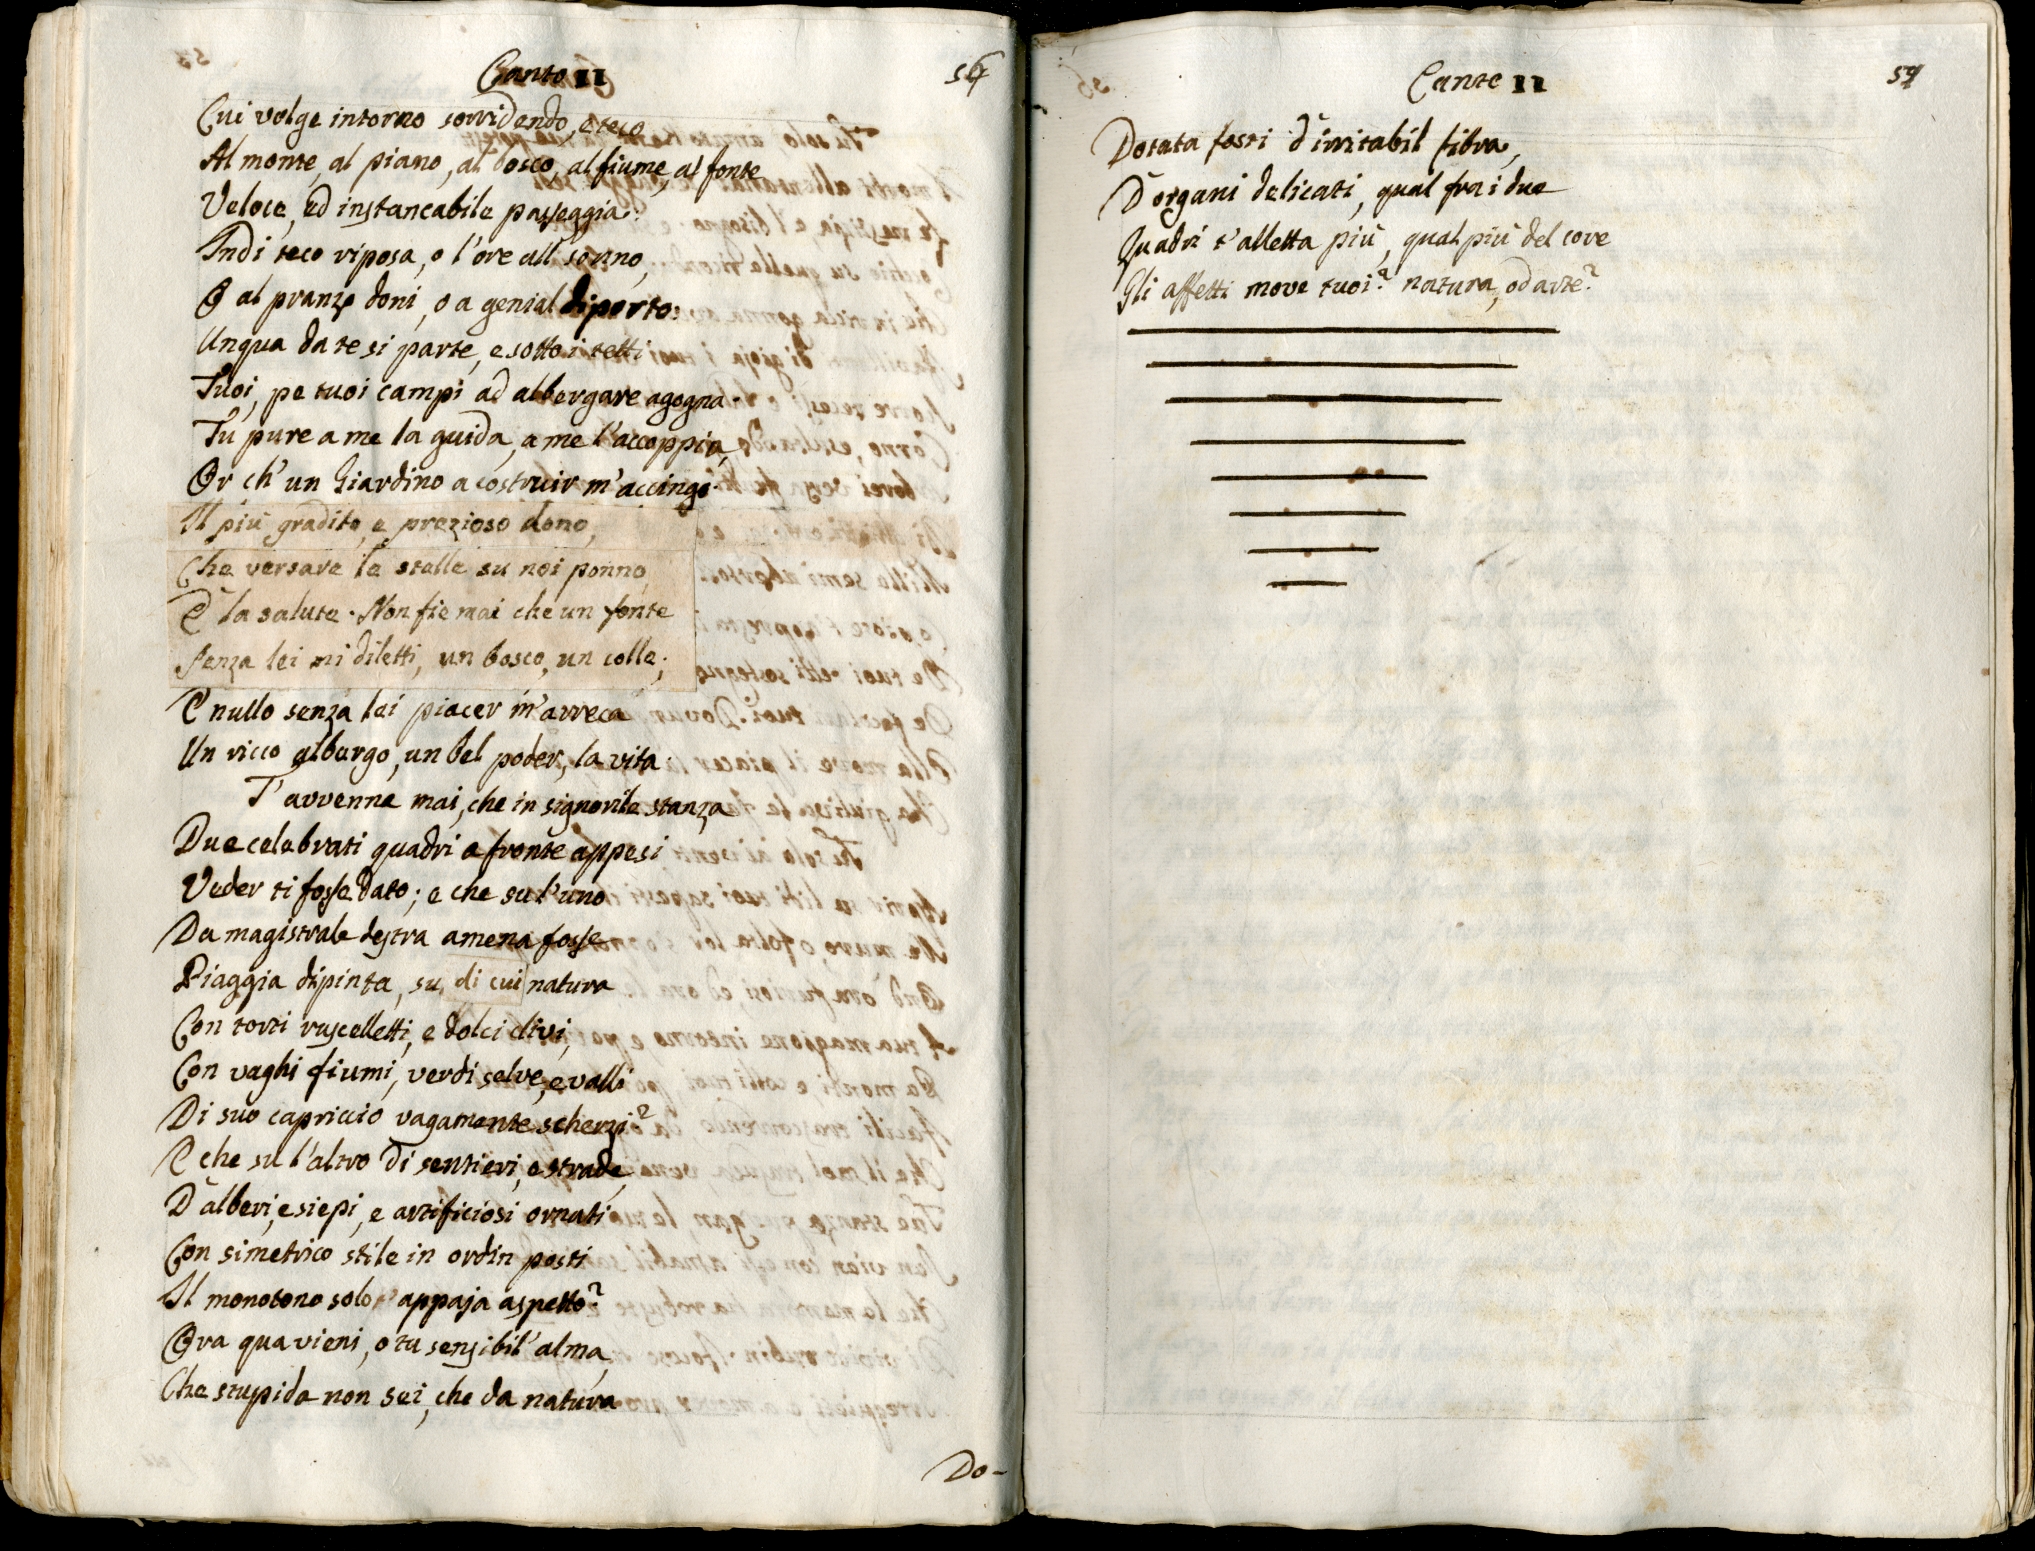 Canto II
56
Cui volge intorno sorridendo, e teco
Al monte, al piano, al bosco, al fiume, al fonte
Veloce, ed instancabile passeggia:
Indi teco riposa, o l'ore all' sonno,
O al pranzo doni, o a genial diporto:
Unqua da te si parte, e sotto i tetti
Tuoi, pe tuoi campi ad albergare agogna.
Tu pure a me la guida, a me l'accoppia,
Or ch' un Giardino a costruir m'accingo.
Il più gradito, e prezioso dono,
Che versare le stelle su noi ponno,
È la salute. Non fie mai che un fonte
Senza lei mi diletti, un bosco, un colle;
E nullo senza lei piacer m'arreca
Un ricco albergo, un bel poder, la vita.
T'avvenne mai, che in signorile stanza
Due celebrati quadri a fronte appesi
Veder ti fosse dato; e che su l'uno
Da magistrale destra amena fosse
Piaggia dipinta, su di cui natura
Con torti ruscelletti, e dolci clivi,
Con vaghi fiumi, verdi selve, e valli
Di suo capriccio vagamente scherzi?
E che su l'altro di sentieri, e strade,
D'alberi, e siepi, e artificiosi ornati
Con simetrico stile in ordin posti
Il monotono solo appaja aspetto?
Ora qua vieni, o tu sensibil' alma,
Che stupida non sei, che da natura
Do-
Canto II
57
Dotata fosti d'irritabil fibra,
D'organi delicati, qual fra i due
Quadri t'alletta più, qual più del core
Gli affetti move tuoi? natura, od arte?